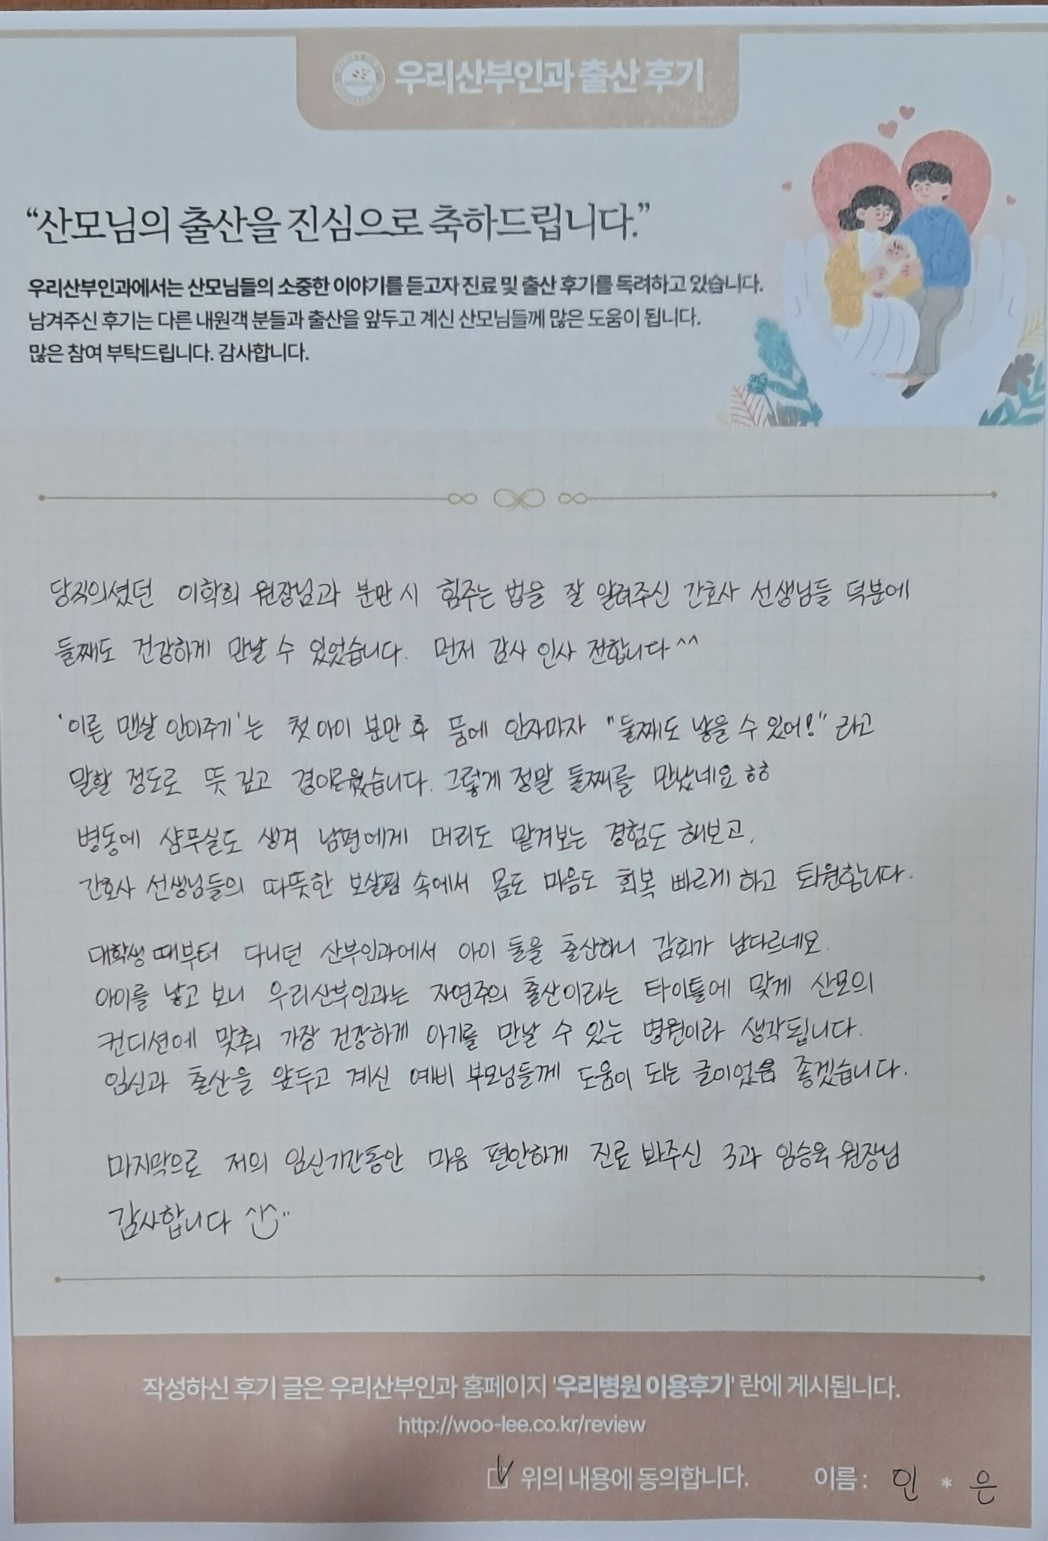 우리산부인과 출산 후기
“산모님의 출산을 진심으로 축하드립니다.”
우리산부인과에서는 산모님들의 소중한 이야기를 듣고자 진료 및 출산 후기를 독려하고 있습니다.
남겨주신 후기는 다른 내원객 분들과 출산을 앞두고 계신 산모님들께 많은 도움이 됩니다.
많은 참여 부탁드립니다. 감사합니다.
당직의셨던 이학희 원장님과 분만 시 힘주는 법을 잘 알려주신 간호사 선생님들 덕분에
둘째도 건강하게 만날 수 있었습니다. 먼저 감사 인사 전합니다^^
'이른 맨살 안아주기'는 첫 아이 분만 후 품에 안자마자 "둘째도 낳을 수 있어!" 라고
말할 정도로 뜻 깊고 경이로웠습니다. 그렇게 정말 둘째를 만났네요ㅎㅎ
병동에 샴푸실도 생겨 남편에게 머리도 맡겨보는 경험도 해보고,
간호사 선생님들의 따뜻한 보살핌 속에서 몸도 마음도 회복 빠르게 하고 퇴원합니다.
대학생 때부터 다니던 산부인과에서 아이 둘을 출산하니 감회가 남다르네요.
아이를 낳고 보니 우리산부인과는 자연주의 출산이라는 타이틀에 맞게 산모의
컨디션에 맞춰 가장 건강하게 아기를 만날 수 있는 병원이라 생각됩니다.
임신과 출산을 앞두고 계신 예비 부모님들께 도움이 되는 글이었음 좋겠습니다.
마지막으로 저의 임신기간동안 마음 편안하게 진료 봐주신 3과 임승욱 원장님
감사합니다
작성하신 후기 글은 우리산부인과 홈페이지 '우리병원 이용후기' 란에 게시됩니다.
http://woo-lee.co.kr/review
위의 내용에 동의합니다. 이름 : 인 * 은